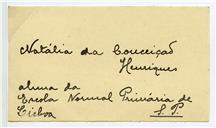 Natália da Conceição
Henriques
aluna da
Escola Normal Primária de
Lisboa S. P.